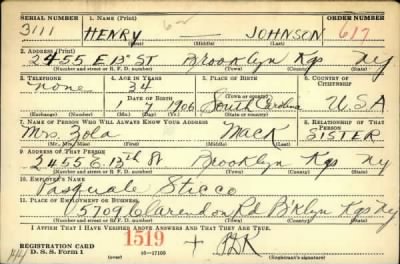 SERIAL NUMBER 1. NAME (Print) ORDER NUMBER
3111 HENRY — JOHNSON 617
(First) (Middle) (Last)
2. ADDRESS (Print)
2455 E 13th ST Brooklyn Kgs NY
(Number and street or R. F. D. number) (Town) (County) (State)
3. TELEPHONE 4. AGE IN YEARS 5. PLACE OF BIRTH 6. COUNTRY OF CITIZENSHIP
none 34 South Carolina U.S.A
DATE OF BIRTH
1 7 1906
(Exchange) (Number) (Mo.) (Day) (Yr.) (State or country)
7. NAME OF PERSON WHO WILL ALWAYS KNOW YOUR ADDRESS 8. RELATIONSHIP OF THAT PERSON
Mrs. Zola Mack SISTER
(Mr., Mrs., Miss) (First) (Middle) (Last)
9. ADDRESS OF THAT PERSON
2455 E. 13th St Brooklyn Kgs NY
(Number and street or R. F. D. number) (Town) (County) (State)
10. EMPLOYER'S NAME
Pasquale Sticco
11. PLACE OF EMPLOYMENT OR BUSINESS
Clarendon Rd B'klyn Kgs NY
(Number and street or R. F. D. number) (Town) (County) (State)
I AFFIRM THAT I HAVE VERIFIED ABOVE ANSWERS AND THAT THEY ARE TRUE.
REGISTRATION CARD
D. S. S. Form 1 1519 +
16—17105